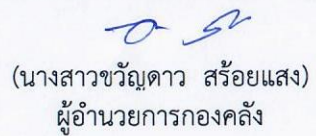 (นางสาวขวัญดาว สร้อยแสง)
ผู้อำนวยการกองคลัง